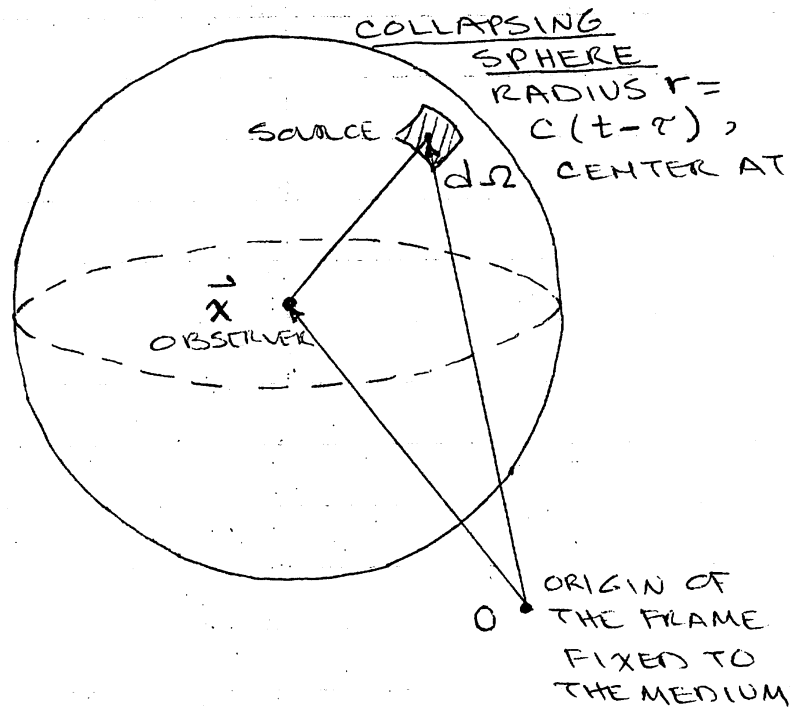 COLLAPSING
SPHERE
RADIUS r =
C (t - τ) ,
CENTER AT
SOURCE
dΩ
x⃗
OBSERVER
O
ORIGIN OF
THE FRAME
FIXED TO
THE MEDIUM